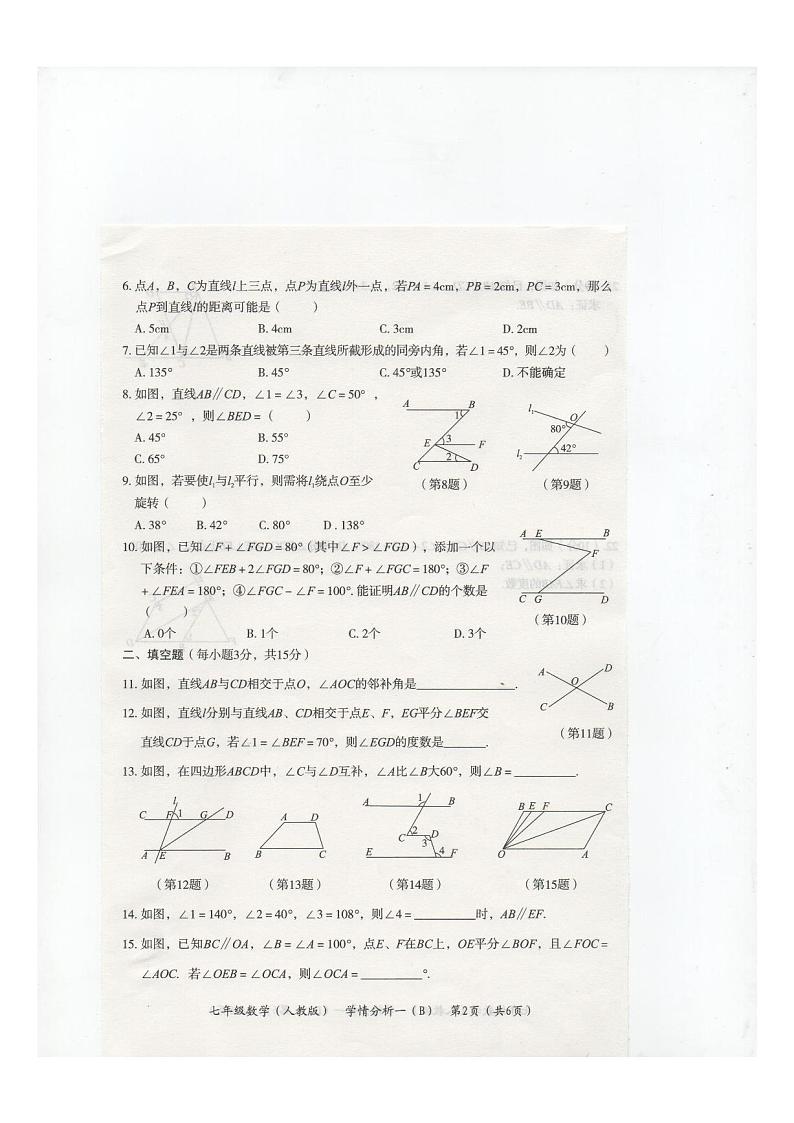 6. 点A，B，C为直线l上三点，点P为直线l外一点，若PA = 4cm，PB = 2cm，PC = 3cm，那么
点P到直线l的距离可能是（　　）
A. 5cm B. 4cm C. 3cm D. 2cm
7. 已知∠1与∠2是两条直线被第三条直线所截形成的同旁内角，若∠1 = 45°，则∠2为（　　）
A. 135° B. 45° C. 45°或135° D. 不能确定
8. 如图，直线AB∥CD，∠1 = ∠3，∠C = 50°，
∠2 = 25°，则∠BED =（　　）
A. 45° B. 55°
C. 65° D. 75°
A B 1 E 3 F 2 C D
（第8题）
l₁ O 80° l₂ 42°
（第9题）
9. 如图，若要使l₁与l₂平行，则需将l₁绕点O至少
旋转（　　）
A. 38° B. 42° C. 80° D . 138°
10. 如图，已知∠F + ∠FGD = 80°（其中∠F > ∠FGD），添加一个以
下条件：①∠FEB + 2∠FGD = 80°；②∠F + ∠FGC = 180°；③∠F
+ ∠FEA = 180°；④∠FGC − ∠F = 100°. 能证明AB∥CD的个数是
（　　）
A. 0个 B. 1个 C. 2个 D. 3个
A E B F C G D
（第10题）
二、填空题（每小题3分，共15分）
11. 如图，直线AB与CD相交于点O，∠AOC的邻补角是______.
A D O C B
（第11题）
12. 如图，直线l分别与直线AB、CD相交于点E、F，EG平分∠BEF交
直线CD于点G，若∠1 = ∠BEF = 70°，则∠EGD的度数是______.
13. 如图，在四边形ABCD中，∠C与∠D互补，∠A比∠B大60°，则∠B = ______.
l C F 1 G D A E B
A D B C
A 1 B C 2 D 3 E 4 F
B E F C O A
（第12题） （第13题） （第14题） （第15题）
14. 如图，∠1 = 140°，∠2 = 40°，∠3 = 108°，则∠4 = ______时，AB∥EF.
15. 如图，已知BC∥OA，∠B = ∠A = 100°，点E、F在BC上，OE平分∠BOF，且∠FOC =
∠AOC. 若∠OEB = ∠OCA，则∠OCA = ______°.
七年级数学（人教版） 学情分析一（B） 第2页（共6页）